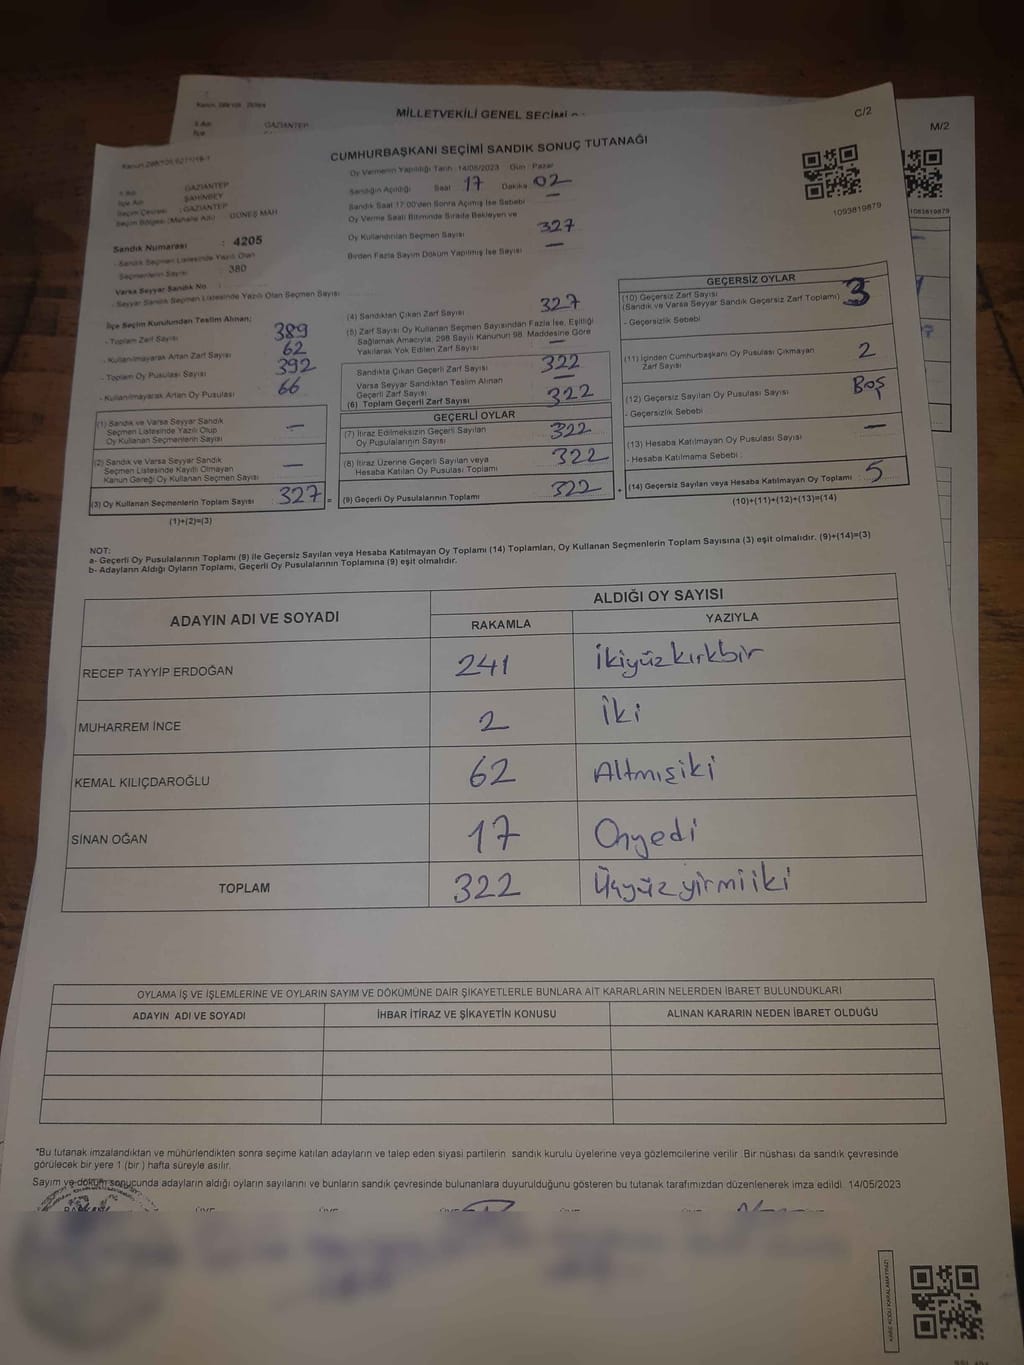 MİLLETVEKİLİ GENEL SEÇİMİ
GAZİANTEP
M/2
1093819879
C/2
CUMHURBAŞKANI SEÇİMİ SANDIK SONUÇ TUTANAĞI
1093819879
Oy Vermenin Yapıldığı Tarih : 14/05/2023 Gün : Pazar
Sandığın Açıldığı Saat 17 Dakika 02
Sandık Saat 17:00'den Sonra Açılmış İse Sebebi —
Oy Verme Saati Bitiminde Sırada Bekleyen ve
Oy Kullandırılan Seçmen Sayısı 327
Birden Fazla Sayım Döküm Yapılmış İse Sayısı —
İli Adı : GAZİANTEP
İlçe Adı : ŞAHİNBEY
Seçim Çevresi : GAZİANTEP
Seçim Bölgesi (Mahalle Adı) : GÜNEŞ MAH
Sandık Numarası : 4205
- Sandık Seçmen Listesinde Yazılı Olan
Seçmenlerin Sayısı : 380
Varsa Seyyar Sandık No :
- Seyyar Sandık Seçmen Listesinde Yazılı Olan Seçmen Sayısı :
İlçe Seçim Kurulundan Teslim Alınan;
- Toplam Zarf Sayısı : 389
- Kullanılmayarak Artan Zarf Sayısı : 62
- Toplam Oy Pusulası Sayısı : 392
- Kullanılmayarak Artan Oy Pusulası : 66
(1) Sandık ve Varsa Seyyar Sandık
Seçmen Listesinde Yazılı Olup
Oy Kullanan Seçmenlerin Sayısı —
(2) Sandık ve Varsa Seyyar Sandık
Seçmen Listesinde Kayıtlı Olmayan
Kanun Gereği Oy Kullanan Seçmen Sayısı —
(3) Oy Kullanan Seçmenlerin Toplam Sayısı 327 =
(1)+(2)=(3)
(4) Sandıktan Çıkan Zarf Sayısı 327
(5) Zarf Sayısı Oy Kullanan Seçmen Sayısından Fazla İse, Eşitliği
Sağlamak Amacıyla, 298 Sayılı Kanunun 98. Maddesine Göre
Yakılarak Yok Edilen Zarf Sayısı —
Sandıkta Çıkan Geçerli Zarf Sayısı 322
Varsa Seyyar Sandıktan Teslim Alınan
Geçerli Zarf Sayısı —
(6) Toplam Geçerli Zarf Sayısı 322
GEÇERLİ OYLAR
(7) İtiraz Edilmeksizin Geçerli Sayılan
Oy Pusulalarının Sayısı 322
(8) İtiraz Üzerine Geçerli Sayılan veya
Hesaba Katılan Oy Pusulası Toplamı 322
(9) Geçerli Oy Pusulalarının Toplamı 322 +
GEÇERSİZ OYLAR
(10) Geçersiz Zarf Sayısı
(Sandık ve Varsa Seyyar Sandık Geçersiz Zarf Toplamı) 3
- Geçersizlik Sebebi
(11) İçinden Cumhurbaşkanı Oy Pusulası Çıkmayan
Zarf Sayısı 2
(12) Geçersiz Sayılan Oy Pusulası Sayısı Boş
- Geçersizlik Sebebi
(13) Hesaba Katılmayan Oy Pusulası Sayısı —
- Hesaba Katılmama Sebebi :
(14) Geçersiz Sayılan veya Hesaba Katılmayan Oy Toplamı : 5
(10)+(11)+(12)+(13)=(14)
NOT:
a- Geçerli Oy Pusulalarının Toplamı (9) ile Geçersiz Sayılan veya Hesaba Katılmayan Oy Toplamı (14) Toplamları, Oy Kullanan Seçmenlerin Toplam Sayısına (3) eşit olmalıdır. (9)+(14)=(3)
b- Adayların Aldığı Oyların Toplamı, Geçerli Oy Pusulalarının Toplamına (9) eşit olmalıdır.
ADAYIN ADI VE SOYADI
ALDIĞI OY SAYISI
RAKAMLA YAZIYLA
RECEP TAYYİP ERDOĞAN 241 İkiyüzkırkbir
MUHARREM İNCE 2 İki
KEMAL KILIÇDAROĞLU 62 Altmışiki
SİNAN OĞAN 17 Onyedi
TOPLAM 322 Üçyüzyirmiiki
OYLAMA İŞ VE İŞLEMLERİNE VE OYLARIN SAYIM VE DÖKÜMÜNE DAİR ŞİKAYETLERLE BUNLARA AİT KARARLARIN NELERDEN İBARET BULUNDUKLARI
ADAYIN ADI VE SOYADI İHBAR İTİRAZ VE ŞİKAYETİN KONUSU ALINAN KARARIN NEDEN İBARET OLDUĞU
*Bu tutanak imzalandıktan ve mühürlendikten sonra seçime katılan adayların ve talep eden siyasi partilerin sandık kurulu üyelerine veya gözlemcilerine verilir. Bir nüshası da sandık çevresinde
görülecek bir yere 1 (bir) hafta süreyle asılır.
Sayım ve döküm sonucunda adayların aldığı oyların sayılarını ve bunların sandık çevresinde bulunanlara duyurulduğunu gösteren bu tutanak tarafımızdan düzenlenerek imza edildi. 14/05/2023
KARE KODU KARALAMAYINIZ!